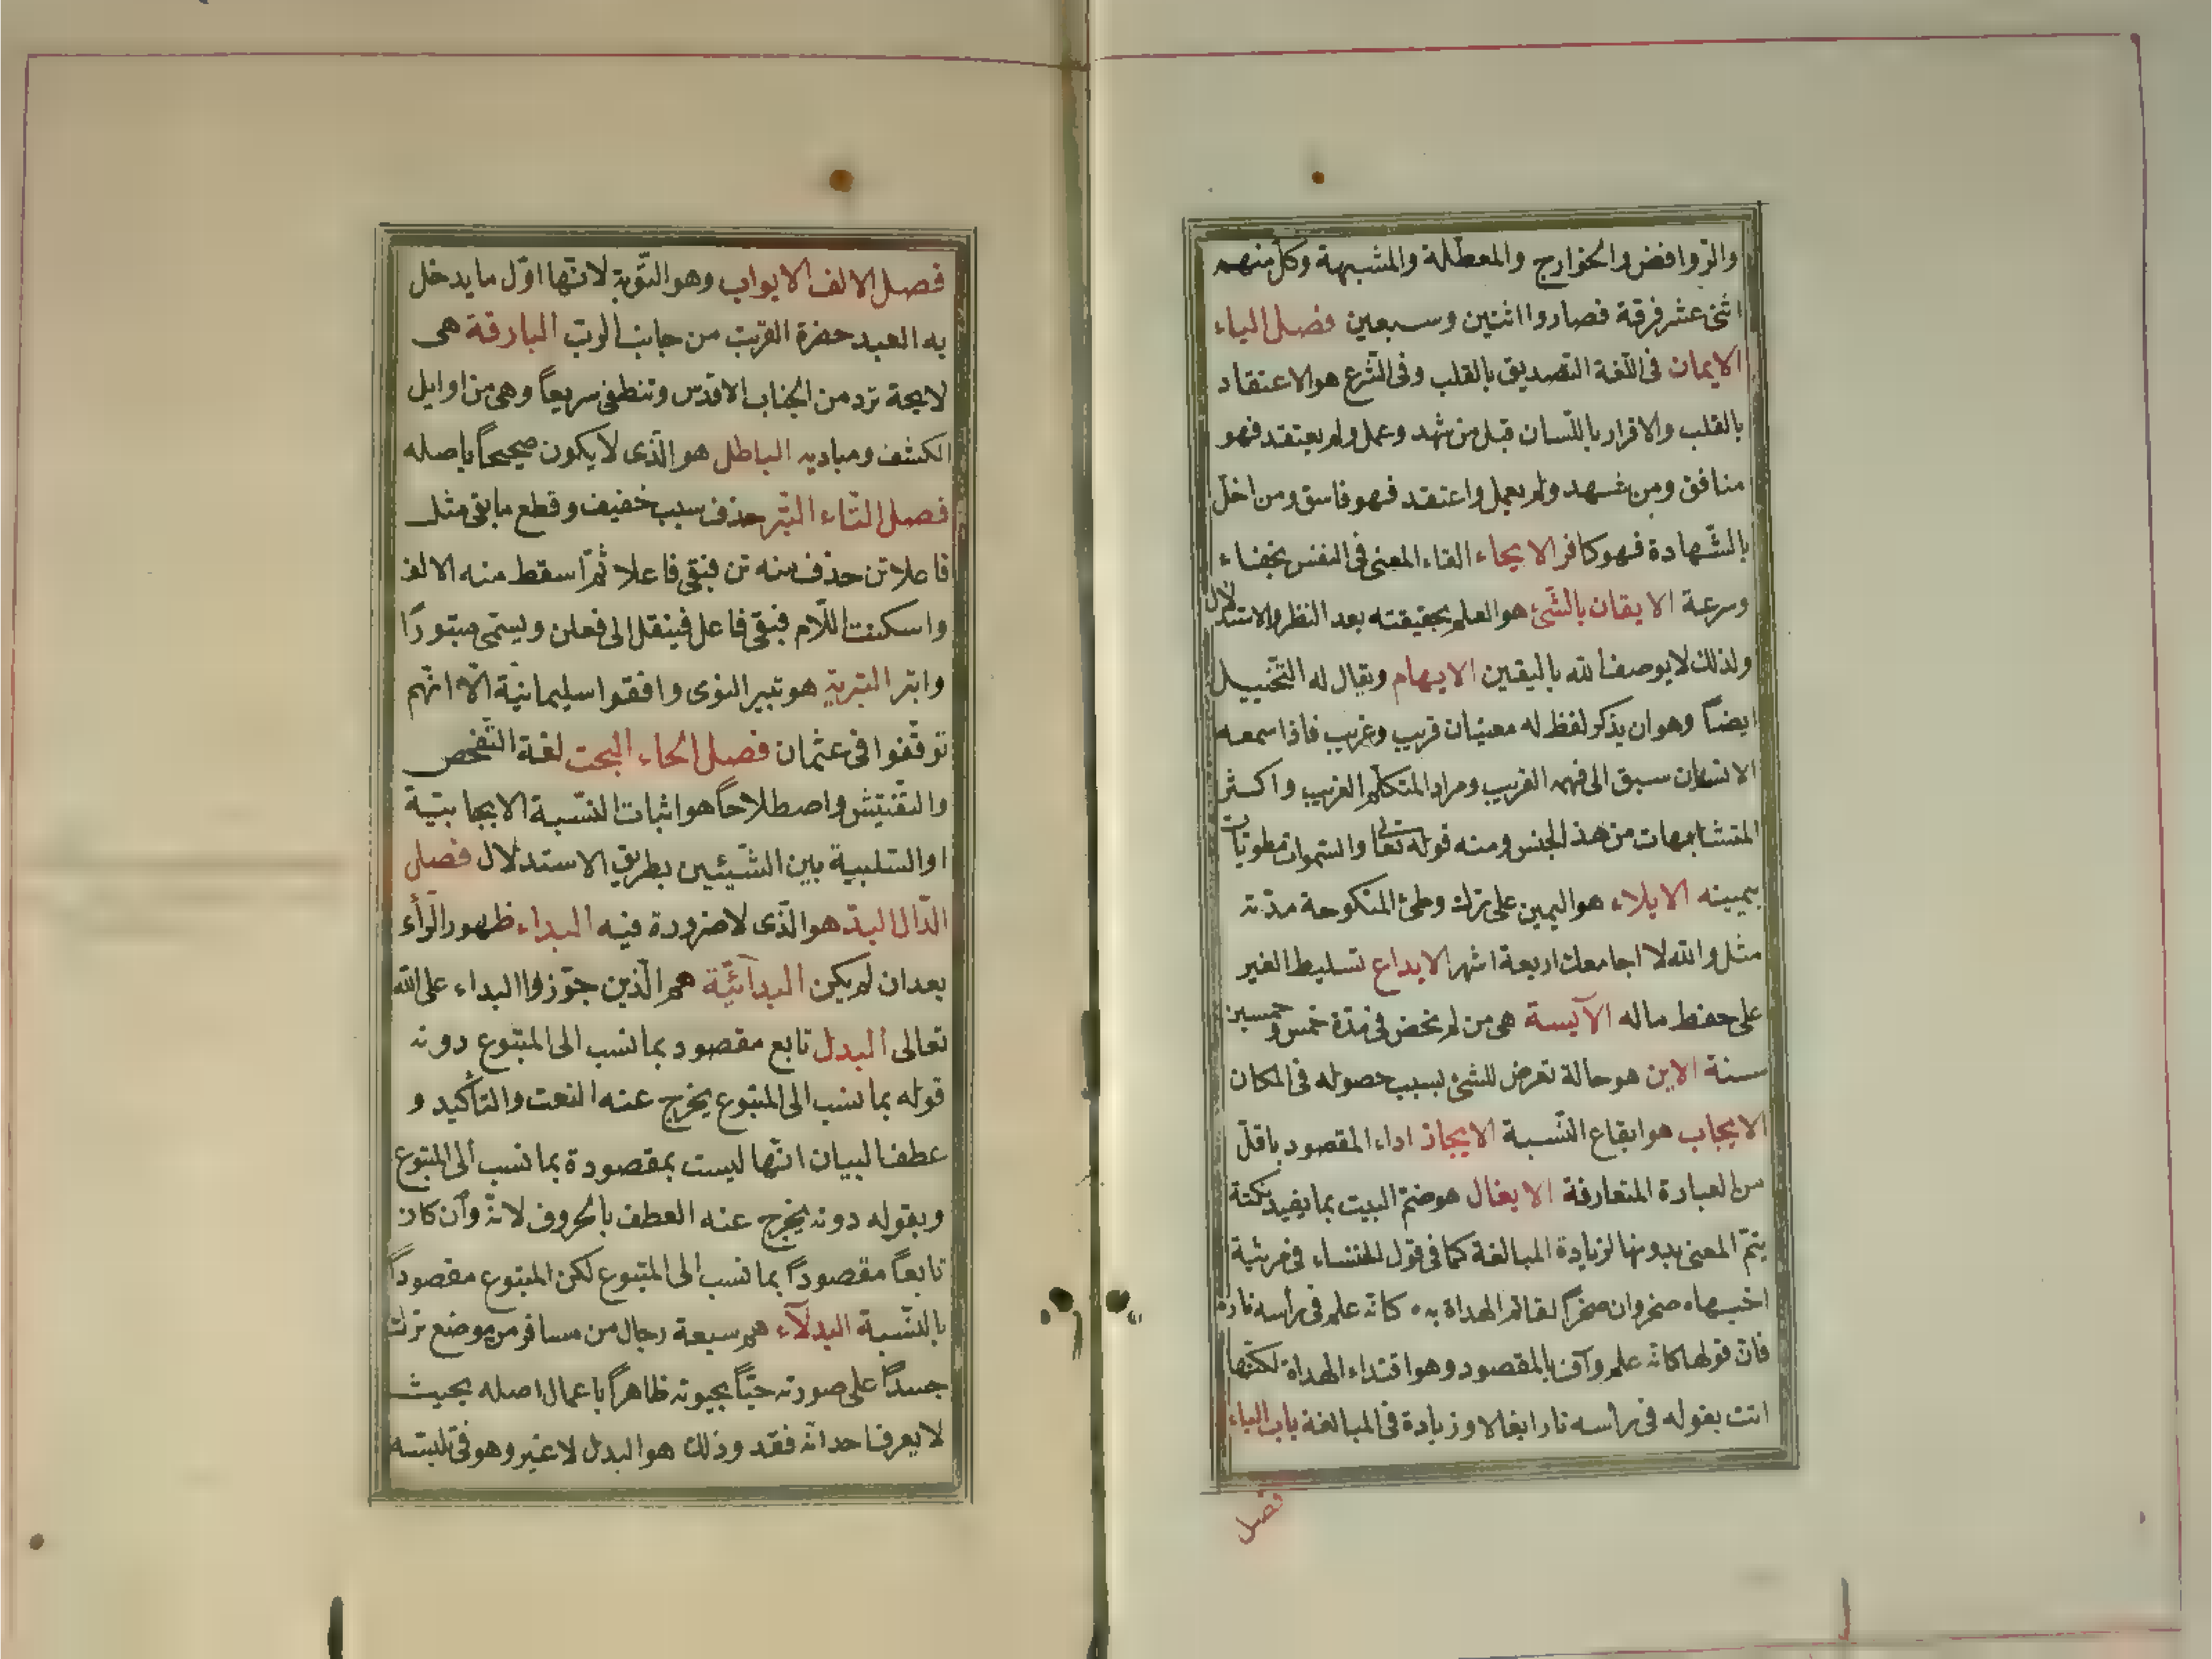 والروافض والخوارج والمعطلة والمشبهة وكل منهم
اثنى عشر فرقة فصاروا اثنين وسبعين فصل الياء
الايمان فى اللغة التصديق بالقلب وفى الشرع هو الاعتقاد
بالقلب والاقرار باللسان قيل من شهد وعمل ولم يعتقد فهو
منافق ومن شهد ولم يعمل واعتقد فهو فاسق ومن اخل
بالشهادة فهو كافر الايحاء القاء المعنى فى النفس بخفاء
وسرعة الايقان بالشئ هو العلم بحقيقته بعد النظر والاستدلال
ولذلك لا يوصف الله باليقين الايهام ويقال له التخييل
ايضاً وهو ان يذكر لفظ له معنيان قريب وغريب فاذا سمعه
الانسان سبق الى فهمه القريب ومراد المتكلم الغريب واكثر
المتشابهات من هذ الجنس ومنه قوله تعالى والسموات مطويات
بيمينه الايلاء هو اليمين على ترك وطئ المنكوحة مدته
مثل والله لا اجامعك اربعة اشهر الايداع تسليط الغير
على حفظ ماله الآيسة هى من لم تحض فى مدة خمس وخمسين
سنة الاين هو حالة تعرض للشئ بسبب حصوله فى المكان
الايجاب هو ايقاع النسبة الايجاز اداء المقصود باقل
من العبارة المتعارفة الايغال هو ختم البيت بما يفيد نكتة
يتم المعنى بدونها لزيادة المبالغة كما فى قول الخنساء فى مرثية
اخيها ه صخر وان صخراً لتأتم الهداة به ه كانه علم فى رأسه نار ه
فان قولها كانه علم واف بالمقصود وهو اقتداء الهداة لكنها
اتت بقوله فى رأسه نار ايغالا وزيادة فى المبالغة باب الباء
فصل
فصل الالف الابواب وهو التوبة لانها اول ما يدخل
به العبد حضرة القرب من جانب الرب البارقة هى
لايحة ترد من الجناب الاقدس وتنطفى سريعاً وهى من اوايل
الكشف ومباديه الباطل هو الذى لا يكون صحيحاً باصله
فصل التاء البتر حذف سبب خفيف وقطع ما بقى مثل
فاعلاتن حذف منه تن فبقى فاعلا ثم اسقط منه الالف
واسكنت اللام فبقى فاعل فينقل الى فعلن ويسمى مبتوراً
وابتر البترية هو تبير النوى وافقوا سليمانية الا انهم
توقفوا فى عثمان فصل الحاء البحث لغة التفحص
والتفتيش واصطلاحاً هو اثبات النسبة الايجابية
او السلبية بين الشيئين بطريق الاستدلال فصل
الدال البد هو الذى لا ضرورة فيه البداء ظهور الرأى
بعد ان لم يكن البدائية هم الذين جوزوا البداء على الله
تعالى البدل تابع مقصود بما نسب الى المتبوع دونه
قوله بما نسب الى المتبوع يخرج عنه النعت والتأكيد و
عطف البيان انها ليست بمقصودة بما نسب الى المتبوع
وبقوله دونه يخرج عنه العطف بالحروف لانه وان كان
تابعاً مقصوداً بما نسب الى المتبوع لكن المتبوع مقصوداً
بالنسبة البدلاء هم سبعة رجال من سافر من موضع ترك
جسداً على صورته حياً بحيوته ظاهراً باعمال اصله بحيث
لا يعرف احد انه فقد وذلك هو البدل لا غير وهو فى تلبسه